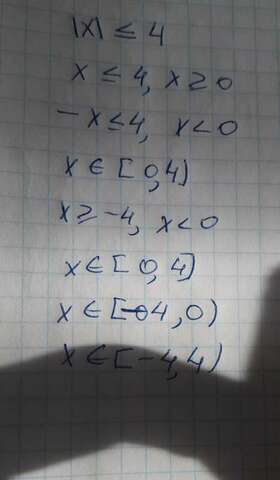 |x| ≤ 4
x ≤ 4, x ≥ 0
-x ≤ 4, x < 0
x ∈ [0,4]
x ≥ -4, x < 0
x ∈ [0,4]
x ∈ [-4,0)
x ∈ [-4,4)